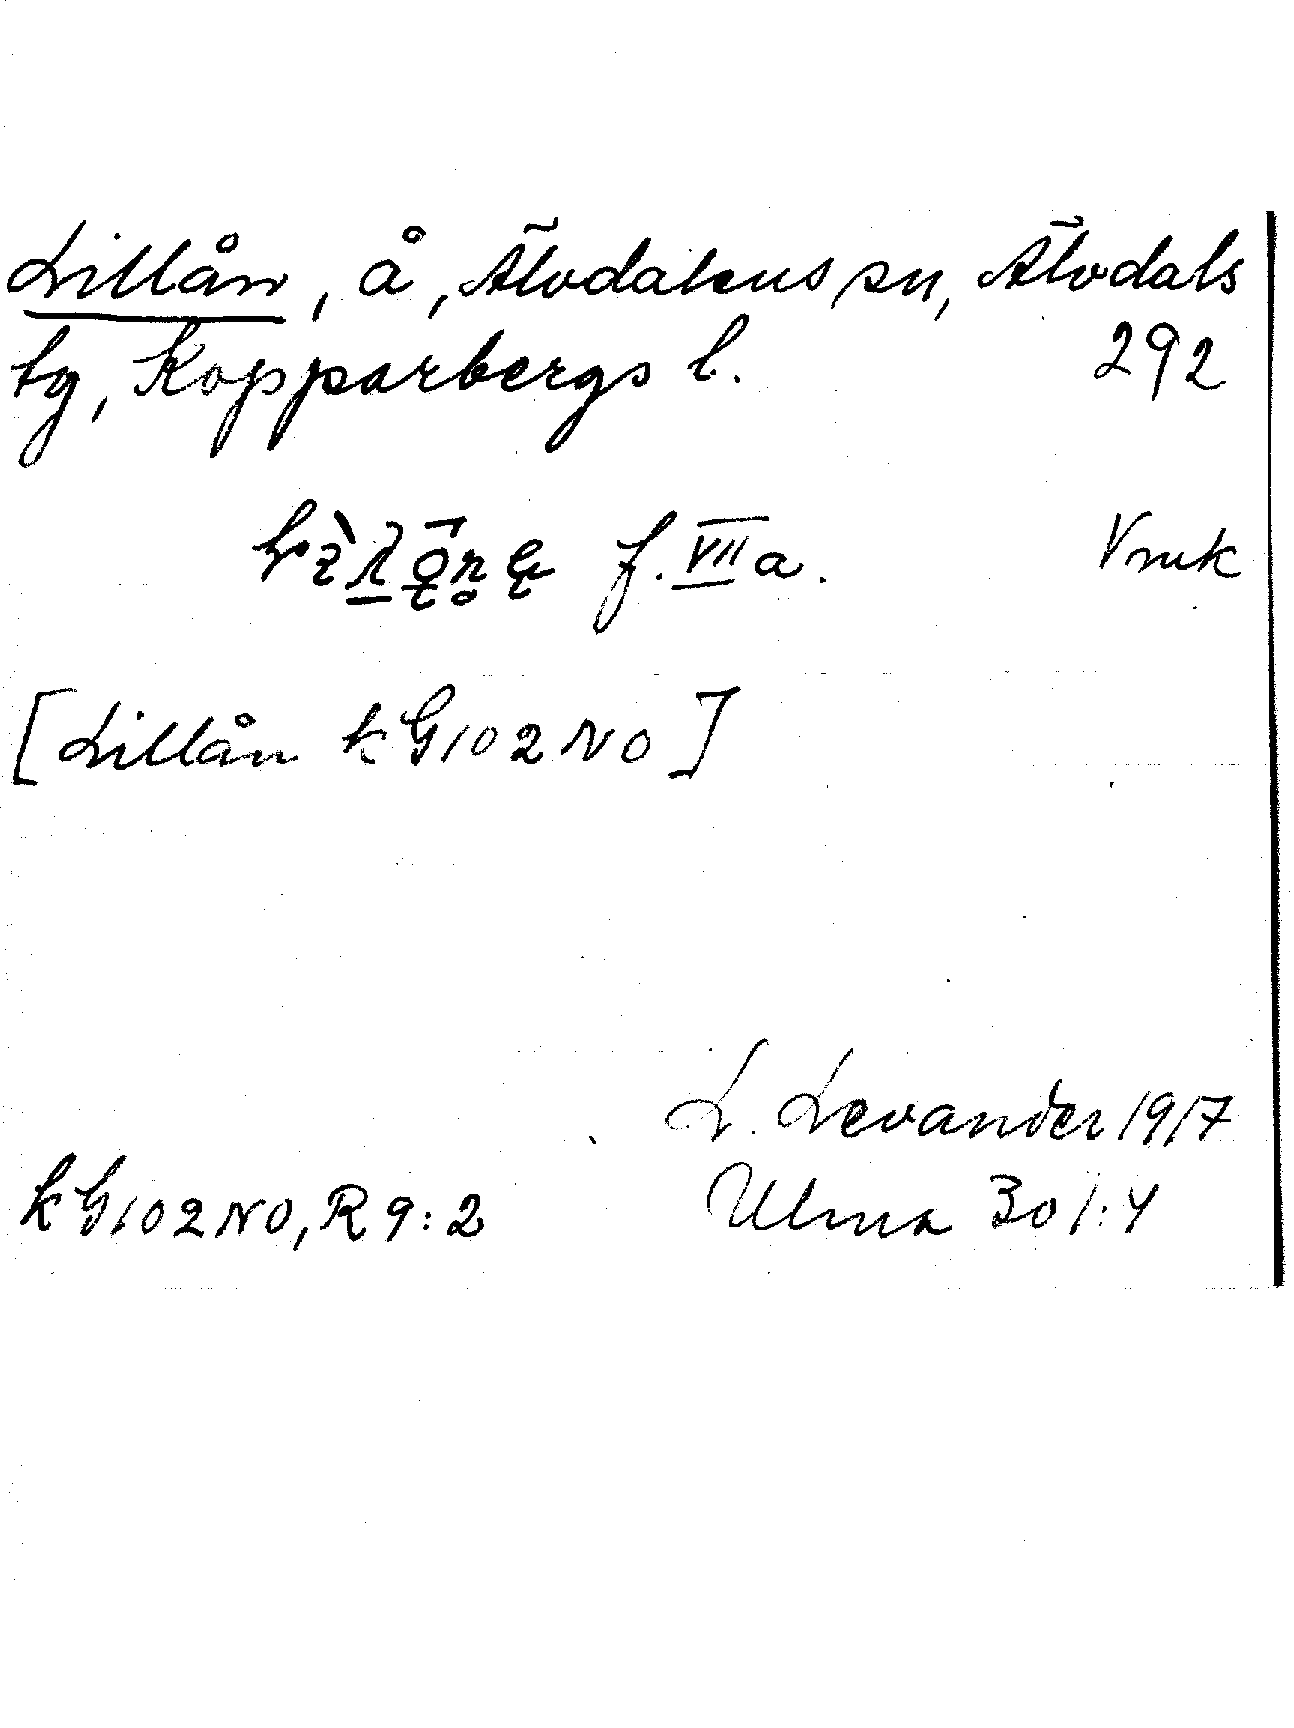 Lillån, å, Älvdalens sn, Älvdals
tg, Kopparbergs l. 292
f. VII a. Vmk
[Lillån kG102NO]
L. Levander 1917
kG102NO, R9:2 Ulma 301:4